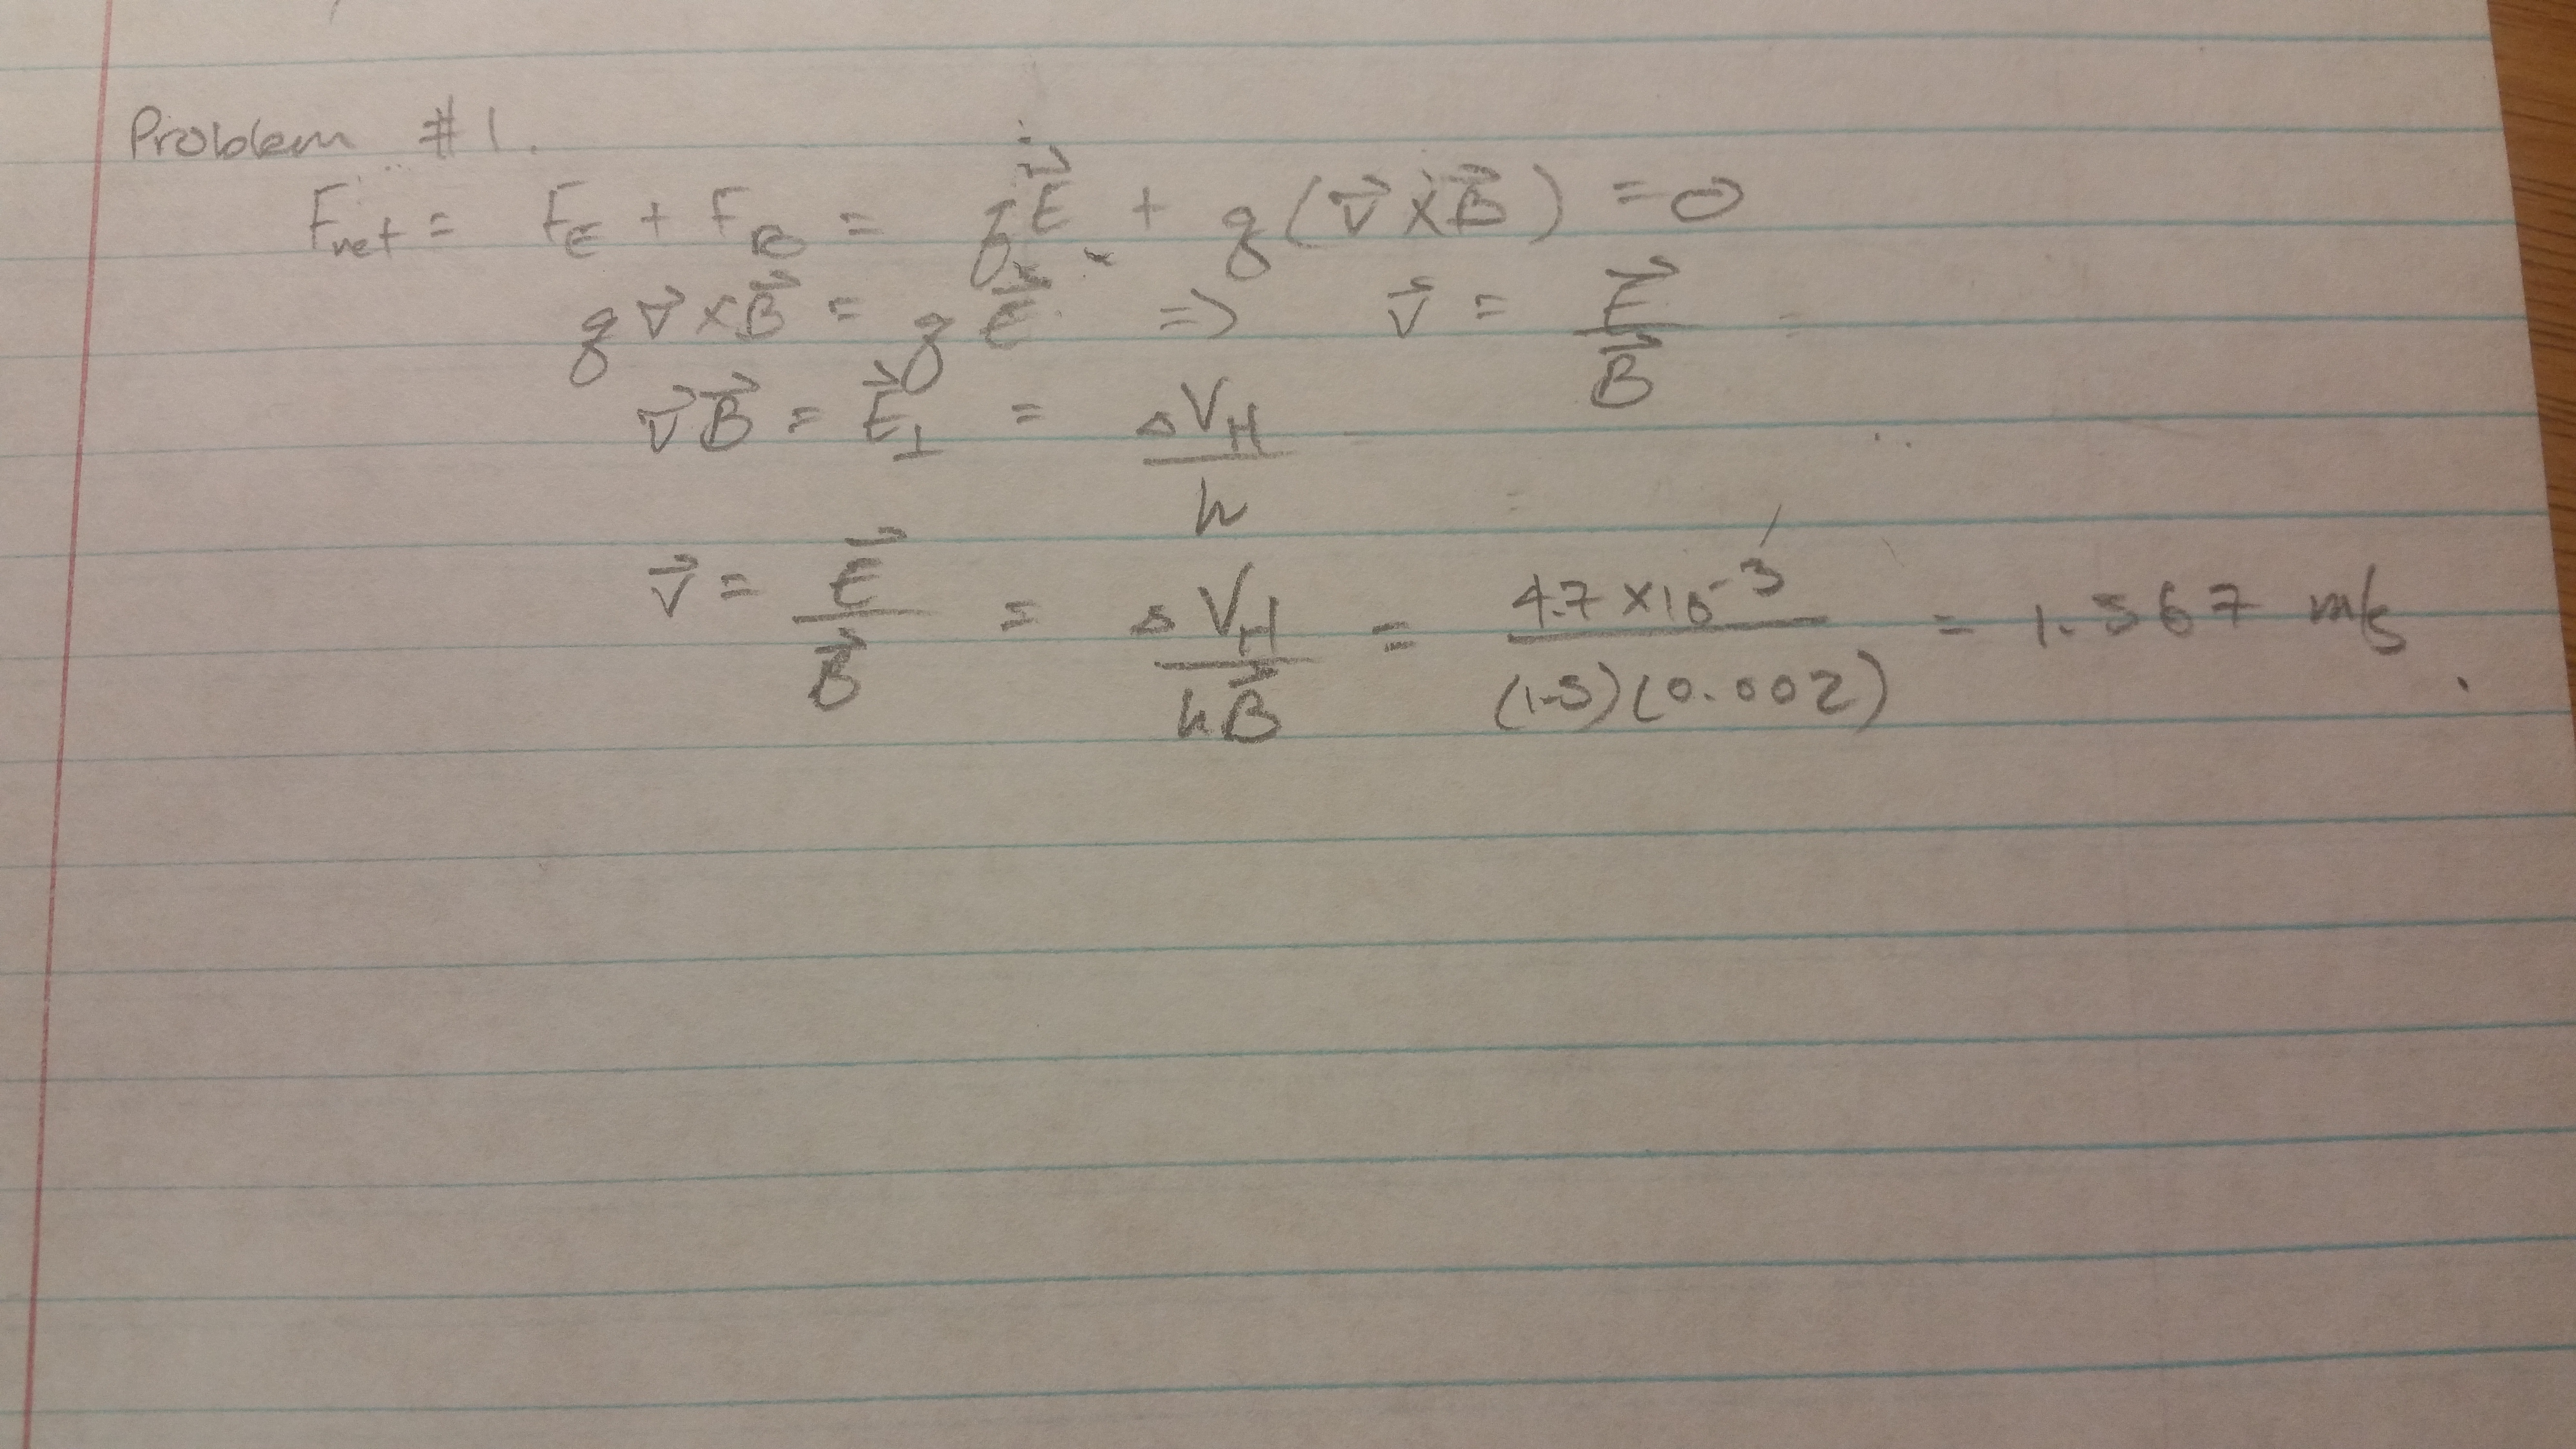 Problem #1.
F_net = F_E + F_B = qE⃗ + q(v⃗ × B⃗) = 0
q v⃗ × B⃗ = q E⃗ ⇒ v⃗ = E⃗ / B⃗
v⃗ B⃗ = E⃗_⊥ = ΔV_H / h
v⃗ = E⃗ / B⃗ = ΔV_H / hB⃗ = 4.7 × 10^-3 / (1.5)(0.002) = 1.567 m/s